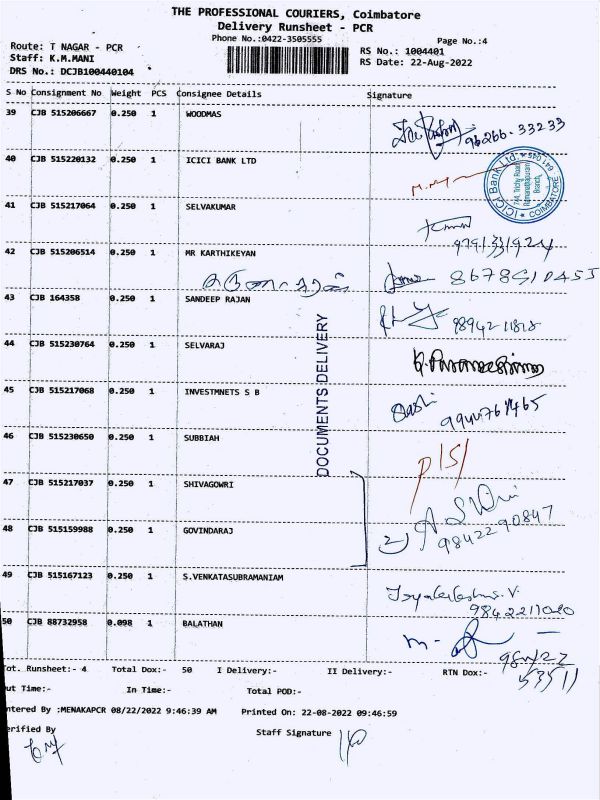 THE PROFESSIONAL COURIERS, Coimbatore
Delivery Runsheet - PCR
Phone No.:0422-3505555
Page No.:4
Route: T NAGAR - PCR
RS No.: 1004401
Staff: K.M.MANI
RS Date: 22-Aug-2022
DRS No.: DCJB100440104
S No Consignment No Weight PCS Consignee Details Signature
39 CJB 515206667 0.250 1 WOODMAS
96266-33233
40 CJB 515220132 0.250 1 ICICI BANK LTD
ICICI Bank Ltd. 641 045 COIMBATORE
Trichy Road
Ramanathapuram
Branch,
41 CJB 515217064 0.250 1 SELVAKUMAR
9791331924
42 CJB 515206514 0.250 1 MR KARTHIKEYAN
8678910455
43 CJB 164358 0.250 1 SANDEEP RAJAN
44 CJB 515230764 0.250 1 SELVARAJ
45 CJB 515217068 0.250 1 INVESTMNETS S B
Sashi
46 CJB 515230650 0.250 1 SUBBIAH
DOCUMENTS DELIVERY
47 CJB 515217037 0.250 1 SHIVAGOWRI
48 CJB 515159988 0.250 1 GOVINDARAJ
2)
9842290847
49 CJB 515167123 0.250 1 S.VENKATASUBRAMANIAM
50 CJB 88732958 0.098 1 BALATHAN
ot. Runsheet:- 4 Total Dox:- 50 I Delivery:- II Delivery:- RTN Dox:-
ut Time:- In Time:- Total POD:-
ntered By :MENAKAPCR 08/22/2022 9:46:39 AM Printed On: 22-08-2022 09:46:59
erified By Staff Signature